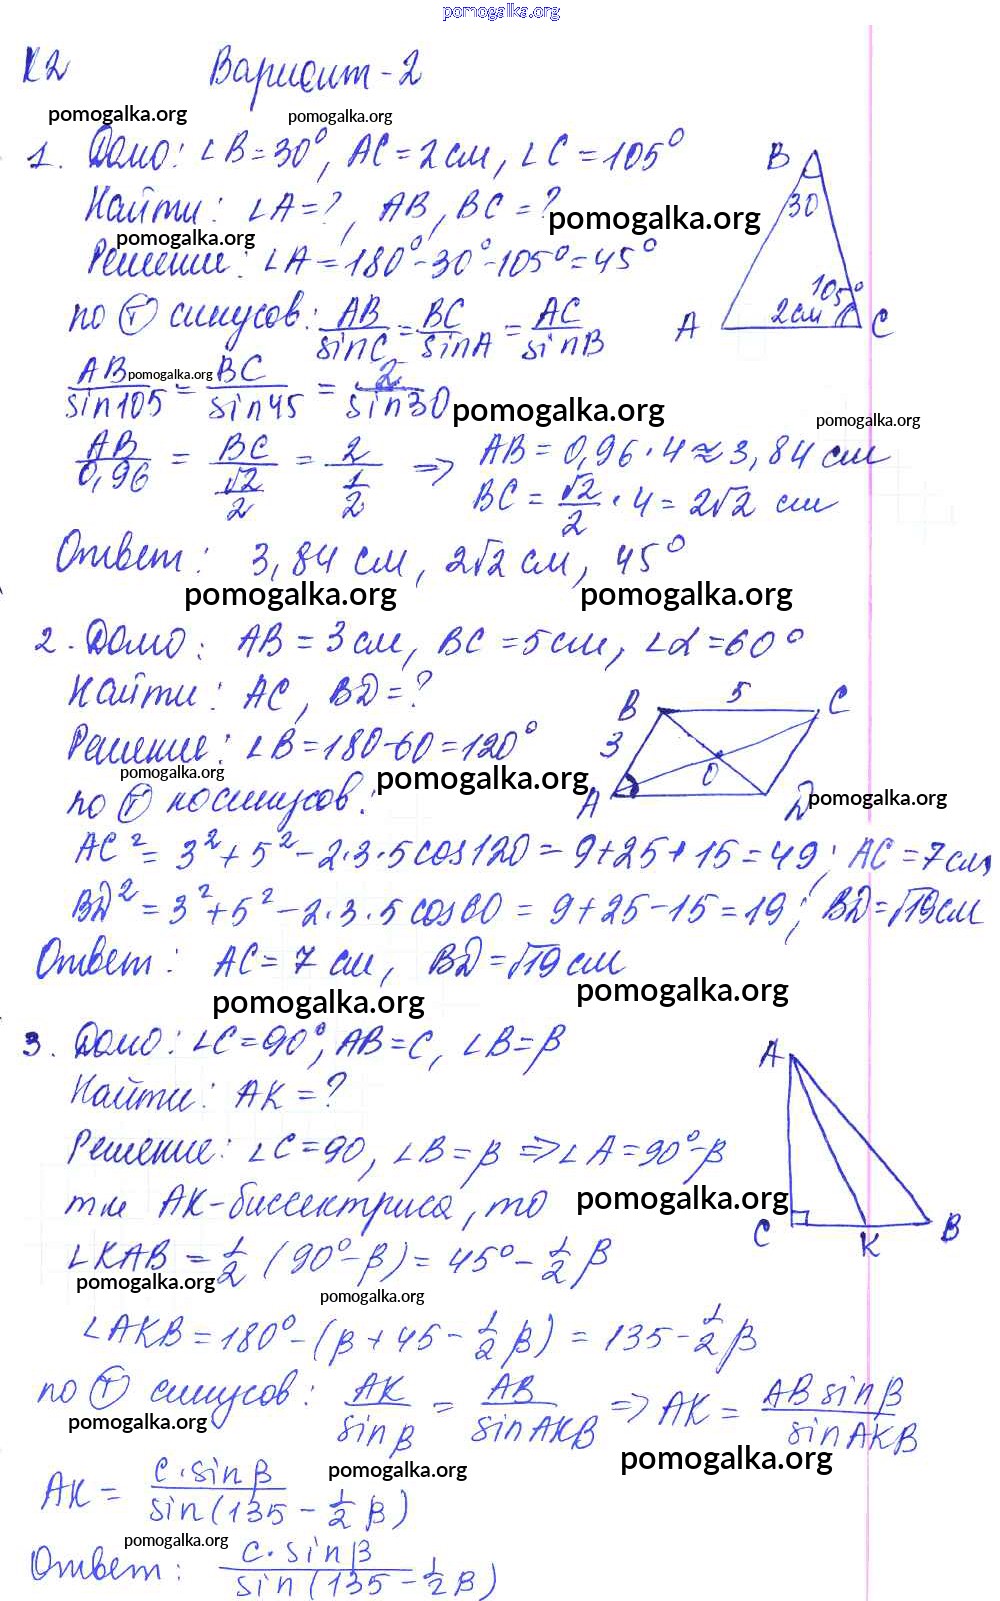 pomogalka.org
К2 Вариант-2
pomogalka.org pomogalka.org
1. Дано: ∠B=30°, AC=2см, ∠C=105°
Найти: ∠A=?, AB, BC=?
pomogalka.org
pomogalka.org
Решение: ∠A=180°-30°-105°=45°
B
30
105°
2см
A C
по Ⓣ синусов: AB/sinC = BC/sinA = AC/sinB
AB/sin105 = BC/sin45 = 2/sin30
pomogalka.org
pomogalka.org
pomogalka.org
AB/0,96 = BC/(√2/2) = 2/(1/2) => AB=0,96·4≈3,84 см
BC=√2/2·4=2√2 см
Ответ: 3,84 см, 2√2 см, 45°
pomogalka.org pomogalka.org
2. Дано: AB=3см, BC=5см, ∠α=60°
Найти: AC, BD=?
B 5 C
3
O
A D
Решение: ∠B=180-60=120°
pomogalka.org pomogalka.org
pomogalka.org
по Ⓣ косинусов:
AC²=3²+5²-2·3·5cos120=9+25+15=49; AC=7см
BD²=3²+5²-2·3·5cos60=9+25-15=19; BD=√19см
Ответ: AC=7 см, BD=√19см
pomogalka.org pomogalka.org
3. Дано: ∠C=90°, AB=c, ∠B=β
Найти: AK=?
A
C K B
Решение: ∠C=90, ∠B=β => ∠A=90°-β
тк AK-биссектриса, то
pomogalka.org
∠KAB=1/2(90°-β)=45°-1/2β
pomogalka.org
pomogalka.org
∠AKB=180°-(β+45-1/2β)=135-1/2β
по Ⓣ синусов: AK/sinβ = AB/sinAKB => AK = ABsinβ/sinAKB
pomogalka.org
pomogalka.org pomogalka.org
AK = c·sinβ/sin(135-1/2β)
pomogalka.org
Ответ: c·sinβ/sin(135-1/2β)